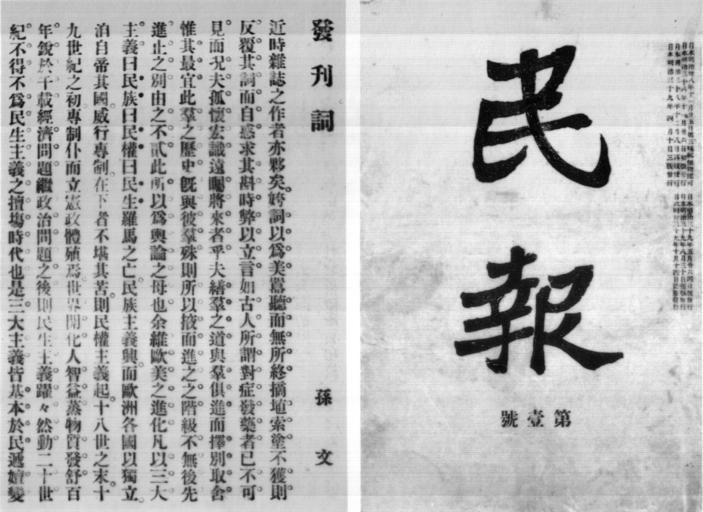 民報
第壹號
發刊詞
孫文
近時雜誌之作者亦夥矣。姱詞以爲美。囂聽而無所終。摘埴索塗不獲。則
反覆其詞而自惑。求其斟時弊以立言。如古人所謂對症發藥者。已不可
見。而況夫孤懷宏識。遠矚將來者乎。夫繕羣之道。與羣俱進。而擇別取舍。
惟其最宜。此羣之歷史。旣與彼羣殊。則所以掖而進之之階級。不無後先
進止之別。由之不貳。此所以爲輿論之母也。余維歐美之進化。凡以三大
主義。曰民族。曰民權。曰民生。羅馬之亡。民族主義興。而歐洲各國以獨立。
洎自帝其國。威行專制。在下者不堪其苦。則民權主義起。十八世之末。十
九世紀之初。專制仆而立憲政體殖焉。世界開化。人智益蒸。物質發舒。百
年銳於千載。經濟問題繼政治問題之後。則民生主義躍々然動。二十世
紀不得不爲民生主義之擅場時代也。是三大主義皆基本於民。遞嬗變